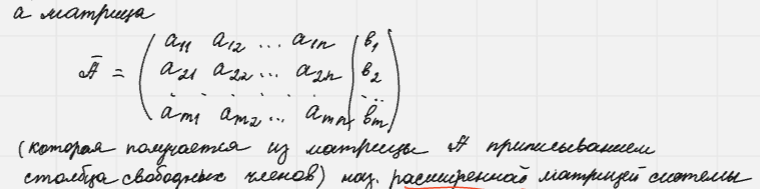 а матрица
a₁₁ a₁₂ ... a₁ₙ | b₁
Ā = a₂₁ a₂₂ ... a₂ₙ | b₂
. . . . . . ...
aₘ₁ aₘ₂ ... aₘₙ | bₘ
(которая получается из матрицы A приписыванием
столбца свободных членов) наз. расширенной матрицей системы